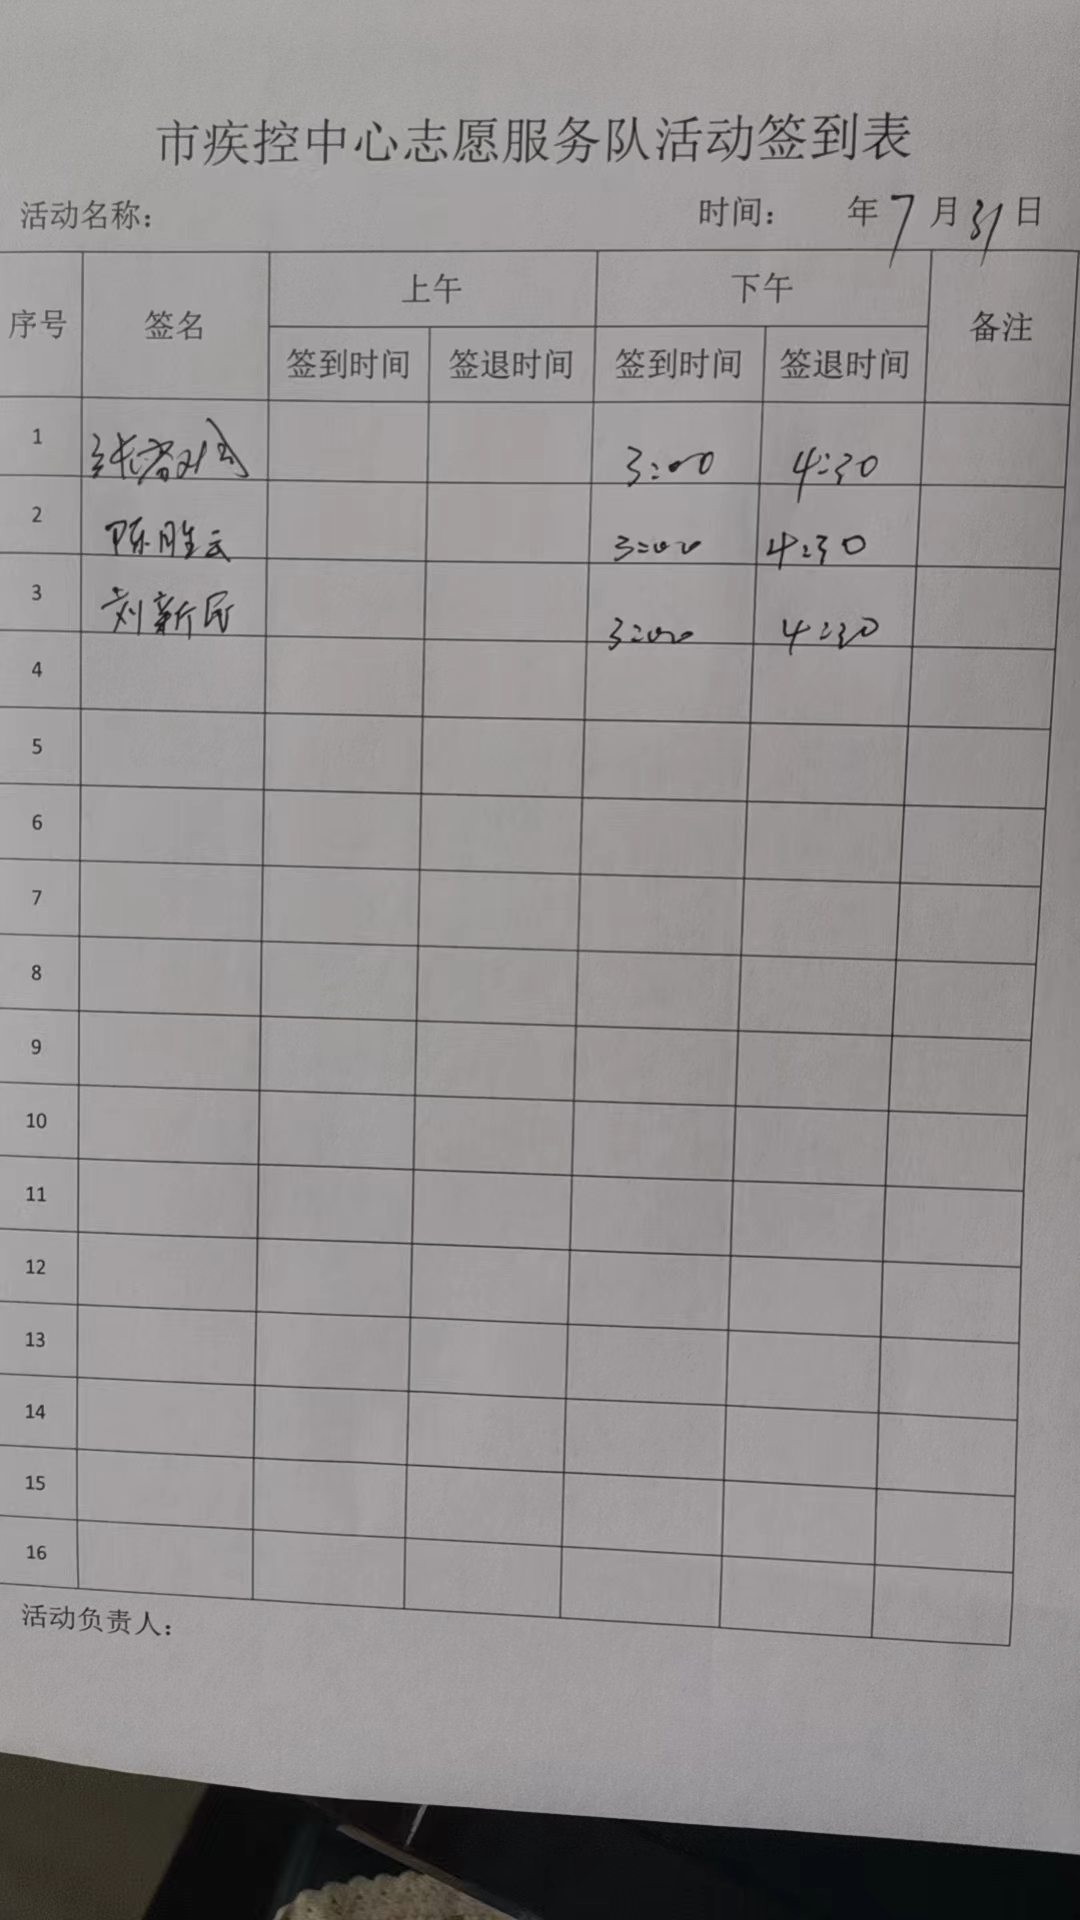 市疾控中心志愿服务队活动签到表
活动名称： 时间： 年7月31日
序号 签名 上午 下午 备注
签到时间 签退时间 签到时间 签退时间
1 3:00 4:30
2 陈胜云 3:00 4:30
3 刘新民 3:00 4:30
4
5
6
7
8
9
10
11
12
13
14
15
16
活动负责人：